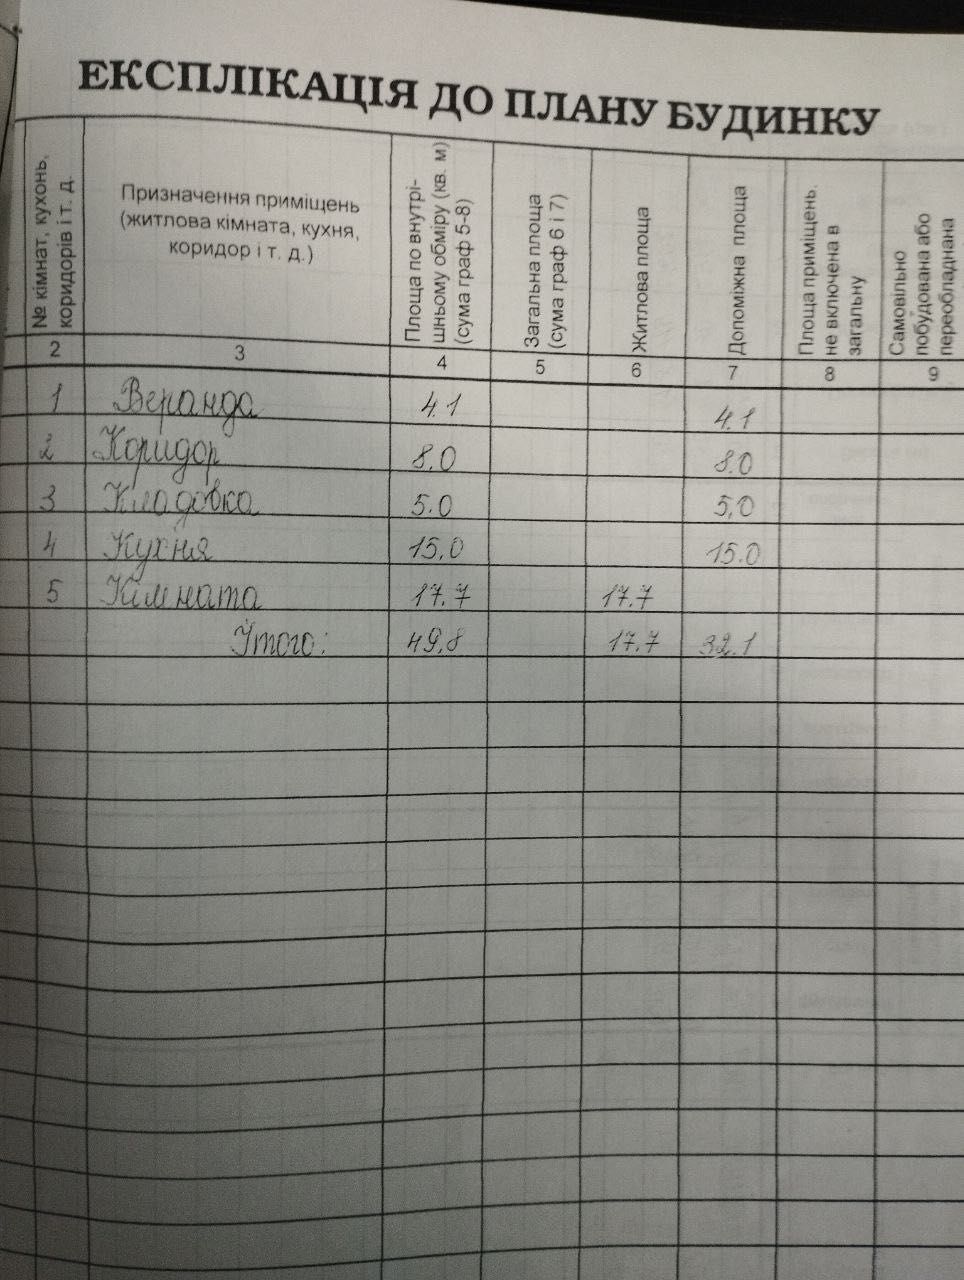 ЕКСПЛІКАЦІЯ ДО ПЛАНУ БУДИНКУ
№ кімнат, кухонь, коридорів і т. д.
Призначення приміщень (житлова кімната, кухня, коридор і т. д.)
Площа по внутрі- шньому обміру (кв. м) (сума граф 5-8)
Загальна площа (сума граф 6 і 7)
Житлова площа
Допоміжна площа
Площа приміщень, не включена в загальну
Самовільно побудована або переобладнана
2 3 4 5 6 7 8 9
1 Веранда 4.1 4.1
2 Коридор 8.0 8.0
3 Кладовка 5.0 5.0
4 Кухня 15.0 15.0
5 Кімната 17.7 17.7
Ітого: 49,8 17.7 32.1